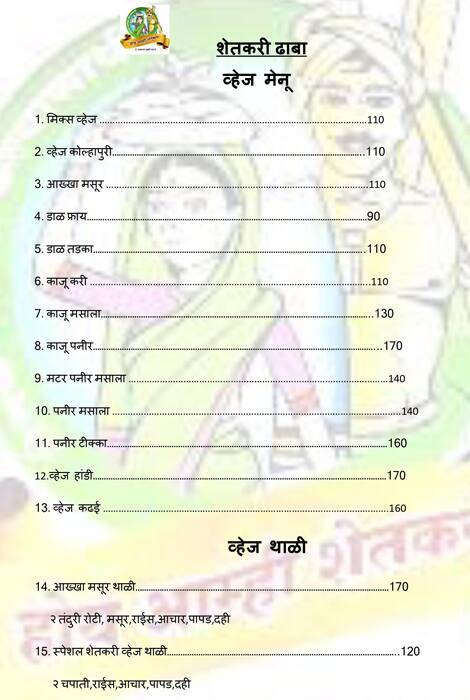 शेतकरी ढाबा
व्हेज मेनू
1. मिक्स व्हेज ....................110
2. व्हेज कोल्हापुरी....................110
3. आख्खा मसूर ....................110
4. डाळ फ्राय....................90
5. डाळ तडका....................110
6. काजू करी ....................110
7. काजू मसाला....................130
8. काजू पनीर....................170
9. मटर पनीर मसाला ....................140
10. पनीर मसाला ....................140
11. पनीर टीक्का....................160
12.व्हेज हांडी....................170
13. व्हेज कढई ....................160
व्हेज थाळी
होय आम्हा शेतक
14. आख्खा मसूर थाळी....................170
२ तंदुरी रोटी, मसूर,राईस,आचार,पापड,दही
15. स्पेशल शेतकरी व्हेज थाळी....................120
२ चपाती,राईस,आचार,पापड,दही